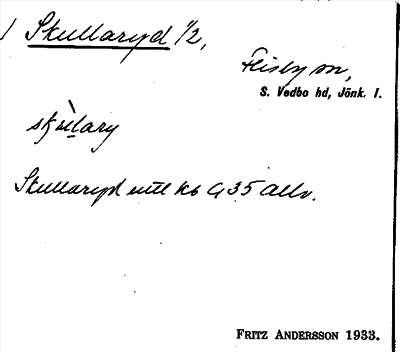 Skullaryd 1/2,
Flisby sn,
S. Vedbo hd, Jönk. l.
skùlary
Skullaryd uttl kb G 35 Allv.
FRITZ ANDERSSON 1933.